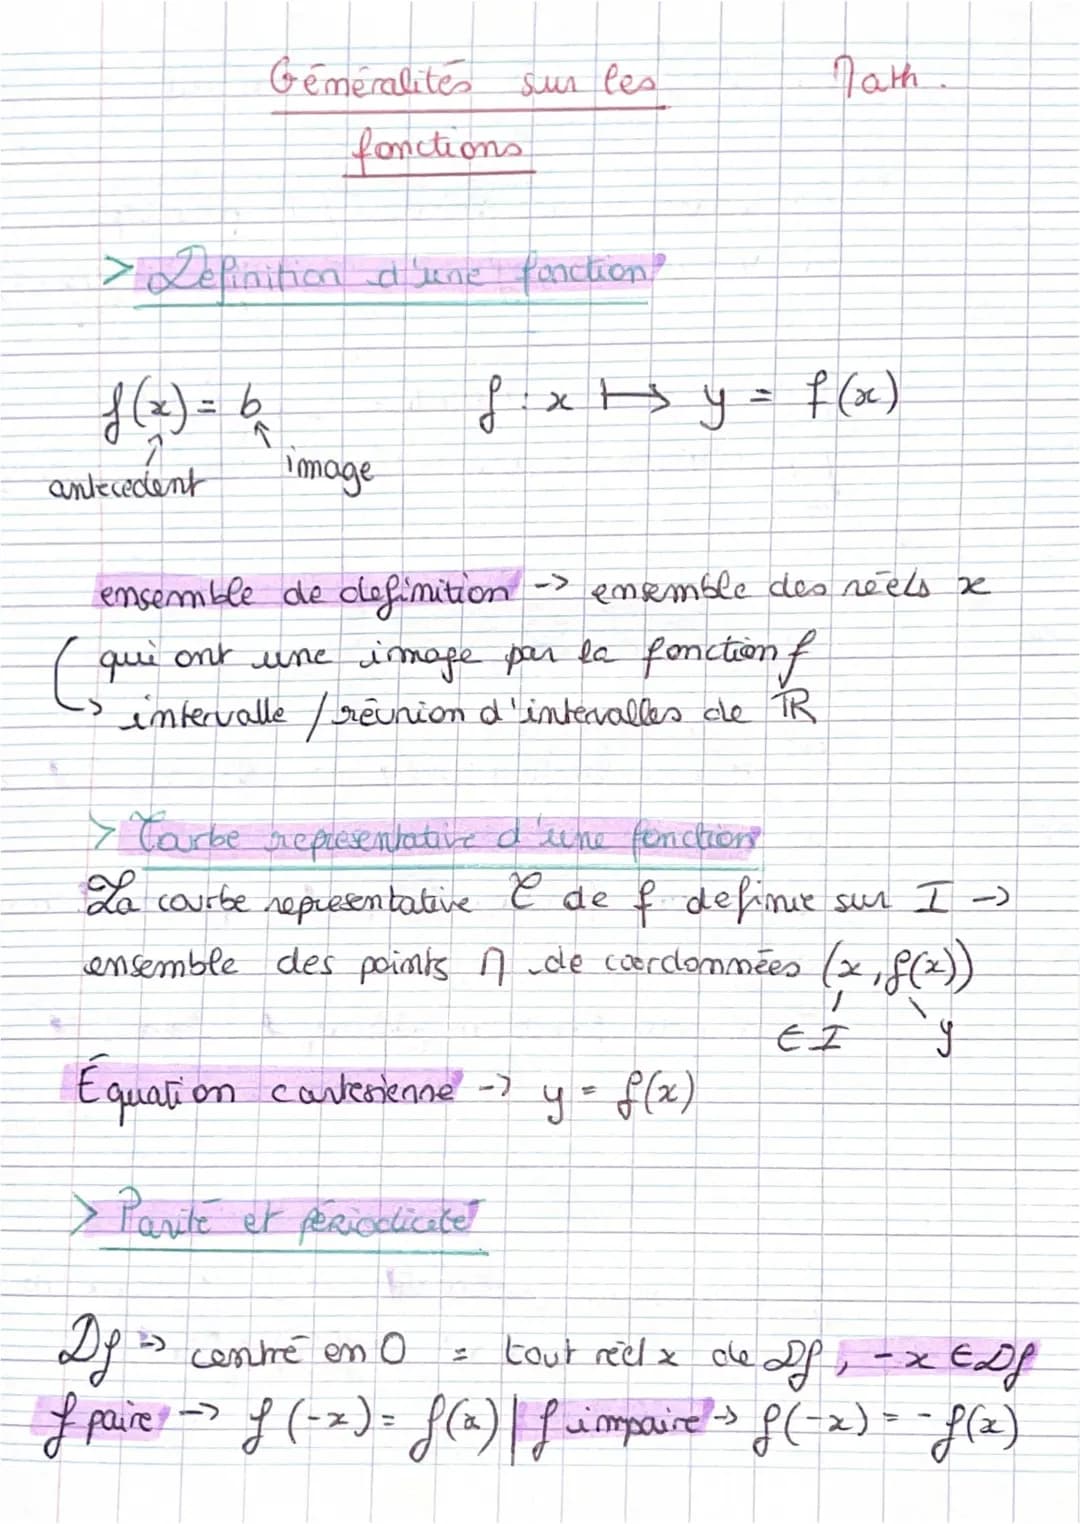 Généralités sur les Math.
fonctions
> Définition d'une fonction
f(x) = b f : x ↦ y = f(x)
antecedent image
ensemble de definition -> ensemble des réels x
qui ont une image par la fonction f
↳ intervalle / réunion d'intervalles de ℝ
> Courbe representative d'une fonction
La courbe representative C de f definie sur I ->
ensemble des points M de coordonnées (x, f(x))
∈ I y
Équation cartesienne -> y = f(x)
> Parité et périodicité
Df -> centré en 0 = tout réel x de Df, -x ∈ Df
f paire -> f(-x) = f(x) | f impaire -> f(-x) = -f(x)